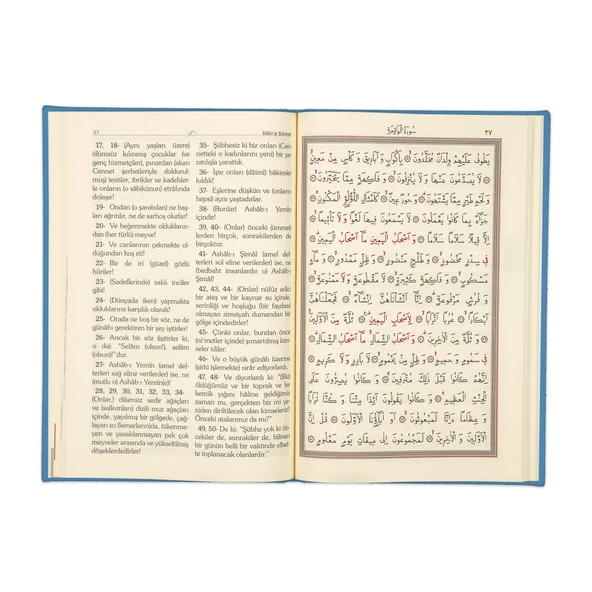 37
Vâkı'a Sûresi
17, 18- (Aynı yaşları üzere)
ölümsüz kılınmış çocuklar (ve
genç hizmetçiler), pınardan (akan
Cennet şerbetleriyle doldurul-
muş) testiler, ibrikler ve kadehler-
le onların (o sâbikūnun) etrâfında
dolaşır!
19- Ondan (o şarabdan) ne baş-
ları ağrıtılır, ne de sarhoş olurlar!
20- Ve beğenmekte oldukların-
dan (her türlü) meyve!
21- Ve canlarının çekmekte ol-
duğundan kuş eti!
22- Bir de iri (güzel) gözlü
hûriler!
23- (Sadeflerinde) saklı inciler
gibi!
24- (Dünyada iken) yapmakta
olduklarına karşılık olarak!
25- Orada ne boş bir söz, ne de
günâhı gerektiren bir şey işitirler!
26- Ancak bir söz (işitirler ki,
o da): "Selâm (olsun!), selâm
(olsun!)"dur.
27- Ashâb-ı Yemîn (amel def-
terleri sağ eline verilenler) ise, ne
(mutlu o) Ashâb-ı Yemîn(e)!
28, 29, 30, 31, 32, 33, 34-
(Onlar,) dikensiz sedir ağaçları
ve (salkımları) dizili muz ağaçları
içinde, yayılmış bir gölgede, çağ-
layan su (kenarların)da, tükenme-
yen ve yasaklanmayan pek çok
meyveler arasında ve yükseltilmiş
döşeklerdedirler!
35- Şübhesiz ki biz onları (Cen-
netteki o kadınlarını yeni) bir ya-
ratılışla yarattık.
36- İşte onları (dâimî) bâkireler
kıldık!
37- Eşlerine düşkün ve (onların)
hepsi(i) aynı yaştadırlar.
38- (Bunlar) Ashâb-ı Yemîn
içindir!
39, 40- (Onlar) önceki (ümmet)
lerden birçok, sonrakilerden de
birçoktur.
41- Ashâb-ı Şimâl (amel def-
terleri sol eline verilenler) ise, ne
(bedbaht insanlardır o) Ashâb-ı
Şimâl!
42, 43, 44- (Onlar) nüfûz edici
bir ateş ve bir kaynar su içinde,
serinliği ve hoşluğu (bir faydası)
olmayan simsiyah dumandan bir
gölge içindedirler!
45- Çünki onlar, bundan önce
(ni'metler içinde) şımartılmış kim-
seler idiler.
46- Ve o büyük günâh üzerinde
(şirki işlemekte) ısrâr ediyorlardı.
47, 48- Ve diyorlardı ki: "(Biz)
öldüğümüz ve bir toprak ve bir
kemik yığını hâline geldiğimiz
zaman mı, gerçekten biz mi ye-
niden diriltilecek olan kimseleriz?
Önceki atalarımız da mı?"
49, 50- De ki: "Şübhe yok ki ön-
cekiler de, sonrakiler de, bilinen
bir günün belli bir vaktinde elbet-
te toplanacak olanlardır."
سُورَةُ الْوَاقِعَةِ
٣٧
يَطُوفُ عَلَيْهِمْ وِلْدَانٌ مُخَلَّدُونَ ۞ بِاَكْوَابٍ وَ اَبَارِيقَ وَ كَأْسٍ مِنْ مَعِينٍ
۞ لَا يُصَدَّعُونَ عَنْهَا وَ لَا يُنْزِفُونَ ۞ وَ فَاكِهَةٍ مِمَّا يَتَخَيَّرُونَ ۞
وَ لَحْمِ طَيْرٍ مِمَّا يَشْتَهُونَ ۞ وَ حُورٌ عِينٌ ۞ كَاَمْثَالِ اللُّؤْلُؤِ الْمَكْنُونِ ۞
جَزَٓاءً بِمَا كَانُوا يَعْمَلُونَ ۞ لَا يَسْمَعُونَ فِيهَا لَغْوًا وَ لَا تَأْثِيمًا ۞
اِلَّا قِيلًا سَلَامًا سَلَامًا ۞ وَ اَصْحَابُ الْيَمِينِ مَٓا اَصْحَابُ الْيَمِينِ ۞
فِي سِدْرٍ مَخْضُودٍ ۞ وَ طَلْحٍ مَنْضُودٍ ۞ وَ ظِلٍّ مَمْدُودٍ ۞ وَ مَٓاءٍ
مَسْكُوبٍ ۞ وَ فَاكِهَةٍ كَثِيرَةٍ ۞ لَا مَقْطُوعَةٍ وَ لَا مَمْنُوعَةٍ ۞
وَ فُرُشٍ مَرْفُوعَةٍ ۞ اِنَّٓا اَنْشَأْنَاهُنَّ اِنْشَٓاءً ۞ فَجَعَلْنَاهُنَّ
اَبْكَارًا ۞ عُرُبًا اَتْرَابًا ۞ لِاَصْحَابِ الْيَمِينِ ۞ ثُلَّةٌ مِنَ الْاَوَّلِينَ
۞ وَ ثُلَّةٌ مِنَ الْاٰخِرِينَ ۞ وَ اَصْحَابُ الشِّمَالِ مَٓا اَصْحَابُ الشِّمَالِ ۞
فِي سَمُومٍ وَ حَمِيمٍ ۞ وَ ظِلٍّ مِنْ يَحْمُومٍ ۞ لَا بَارِدٍ وَ لَا كَرِيمٍ ۞
اِنَّهُمْ كَانُوا قَبْلَ ذٰلِكَ مُتْرَفِينَ ۞ وَ كَانُوا يُصِرُّونَ عَلَى
الْحِنْثِ الْعَظِيمِ ۞ وَ كَانُوا يَقُولُونَ اَئِذَا مِتْنَا وَ كُنَّا تُرَابًا
وَ عِظَامًا ءَاِنَّا لَمَبْعُوثُونَ ۞ اَوَ اٰبَٓاؤُنَا الْاَوَّلُونَ ۞ قُلْ اِنَّ
الْاَوَّلِينَ وَ الْاٰخِرِينَ ۞ لَمَجْمُوعُونَ اِلٰى مِيقَاتِ يَوْمٍ مَعْلُومٍ ۞